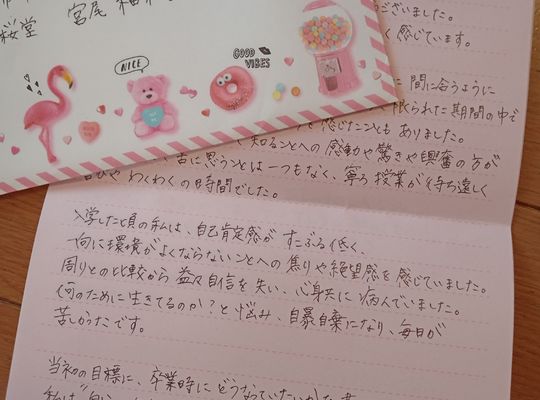 桜堂 宮尾
NICE
GOOD
VIBES
ございました。
く感じています。
に間に合うように
限られた期間の中で
を感じたこともありました。
知ることへの感動や驚きや興奮の方が
苦に思うことは一つもなく、寧ろ授業が待ち遠しく
わくわくの時間でした。
入学した頃の私は、自己肯定感がすこぶる低く、
一向に環境がよくならないことへの焦りや絶望感を感じていました。
周りとの比較から益々自信を失い、心身共に病んでいました。
何のために生きてるのか?と悩み、自暴自棄になり、毎日が
苦しかったです。
当初の目標に、卒業時にどうなっていたいか
私は